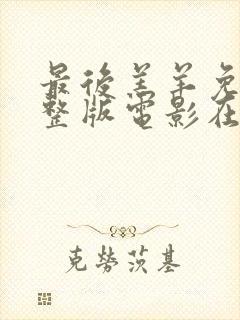 最後羔羊免
整版電影在
克勞茨基